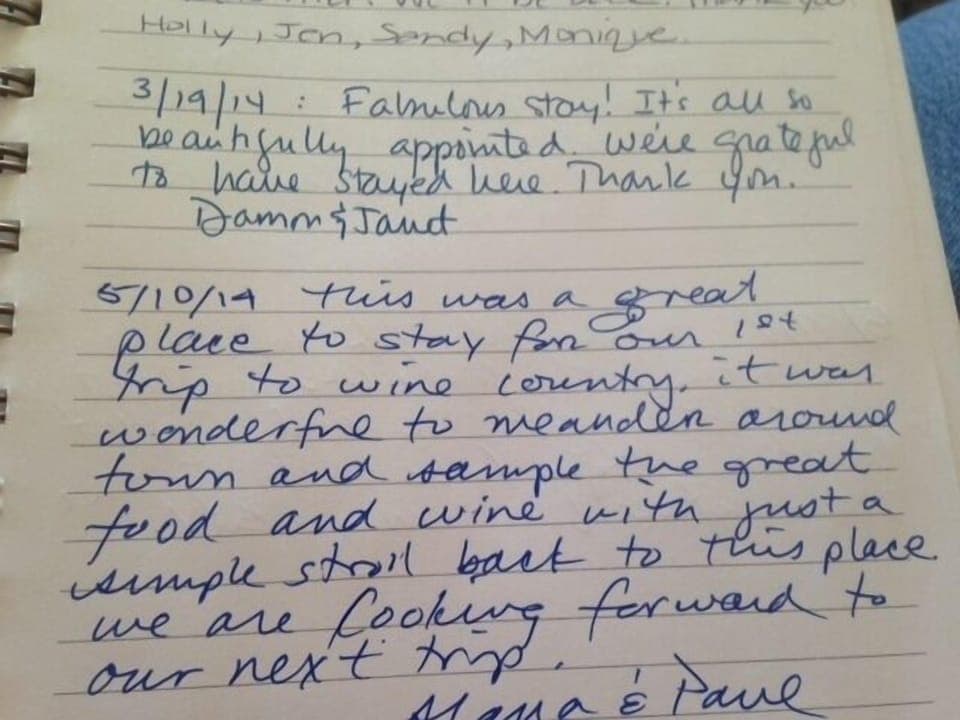 Thank you
Holly, Jen, Sandy, Monique.
3/19/14 : Fabulous stay! It's all so
beautifully appointed. We're grateful
to have stayed here. Thank you.
& Janet
5/10/14 This was a great
place to stay for our 1st
trip to wine country. it was
wonderful to meander around
town and sample the great
food and wine with just a
simple stroll back to this place.
we are looking forward to
our next trip.
& Paul